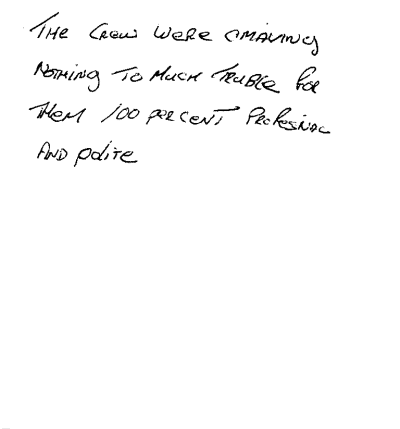 THE CREW WERE OMAIZING
NOTHING TO MUCH TRUBLE FOR
THEM 100 PERCENT PROFESINAL
AND POLITE